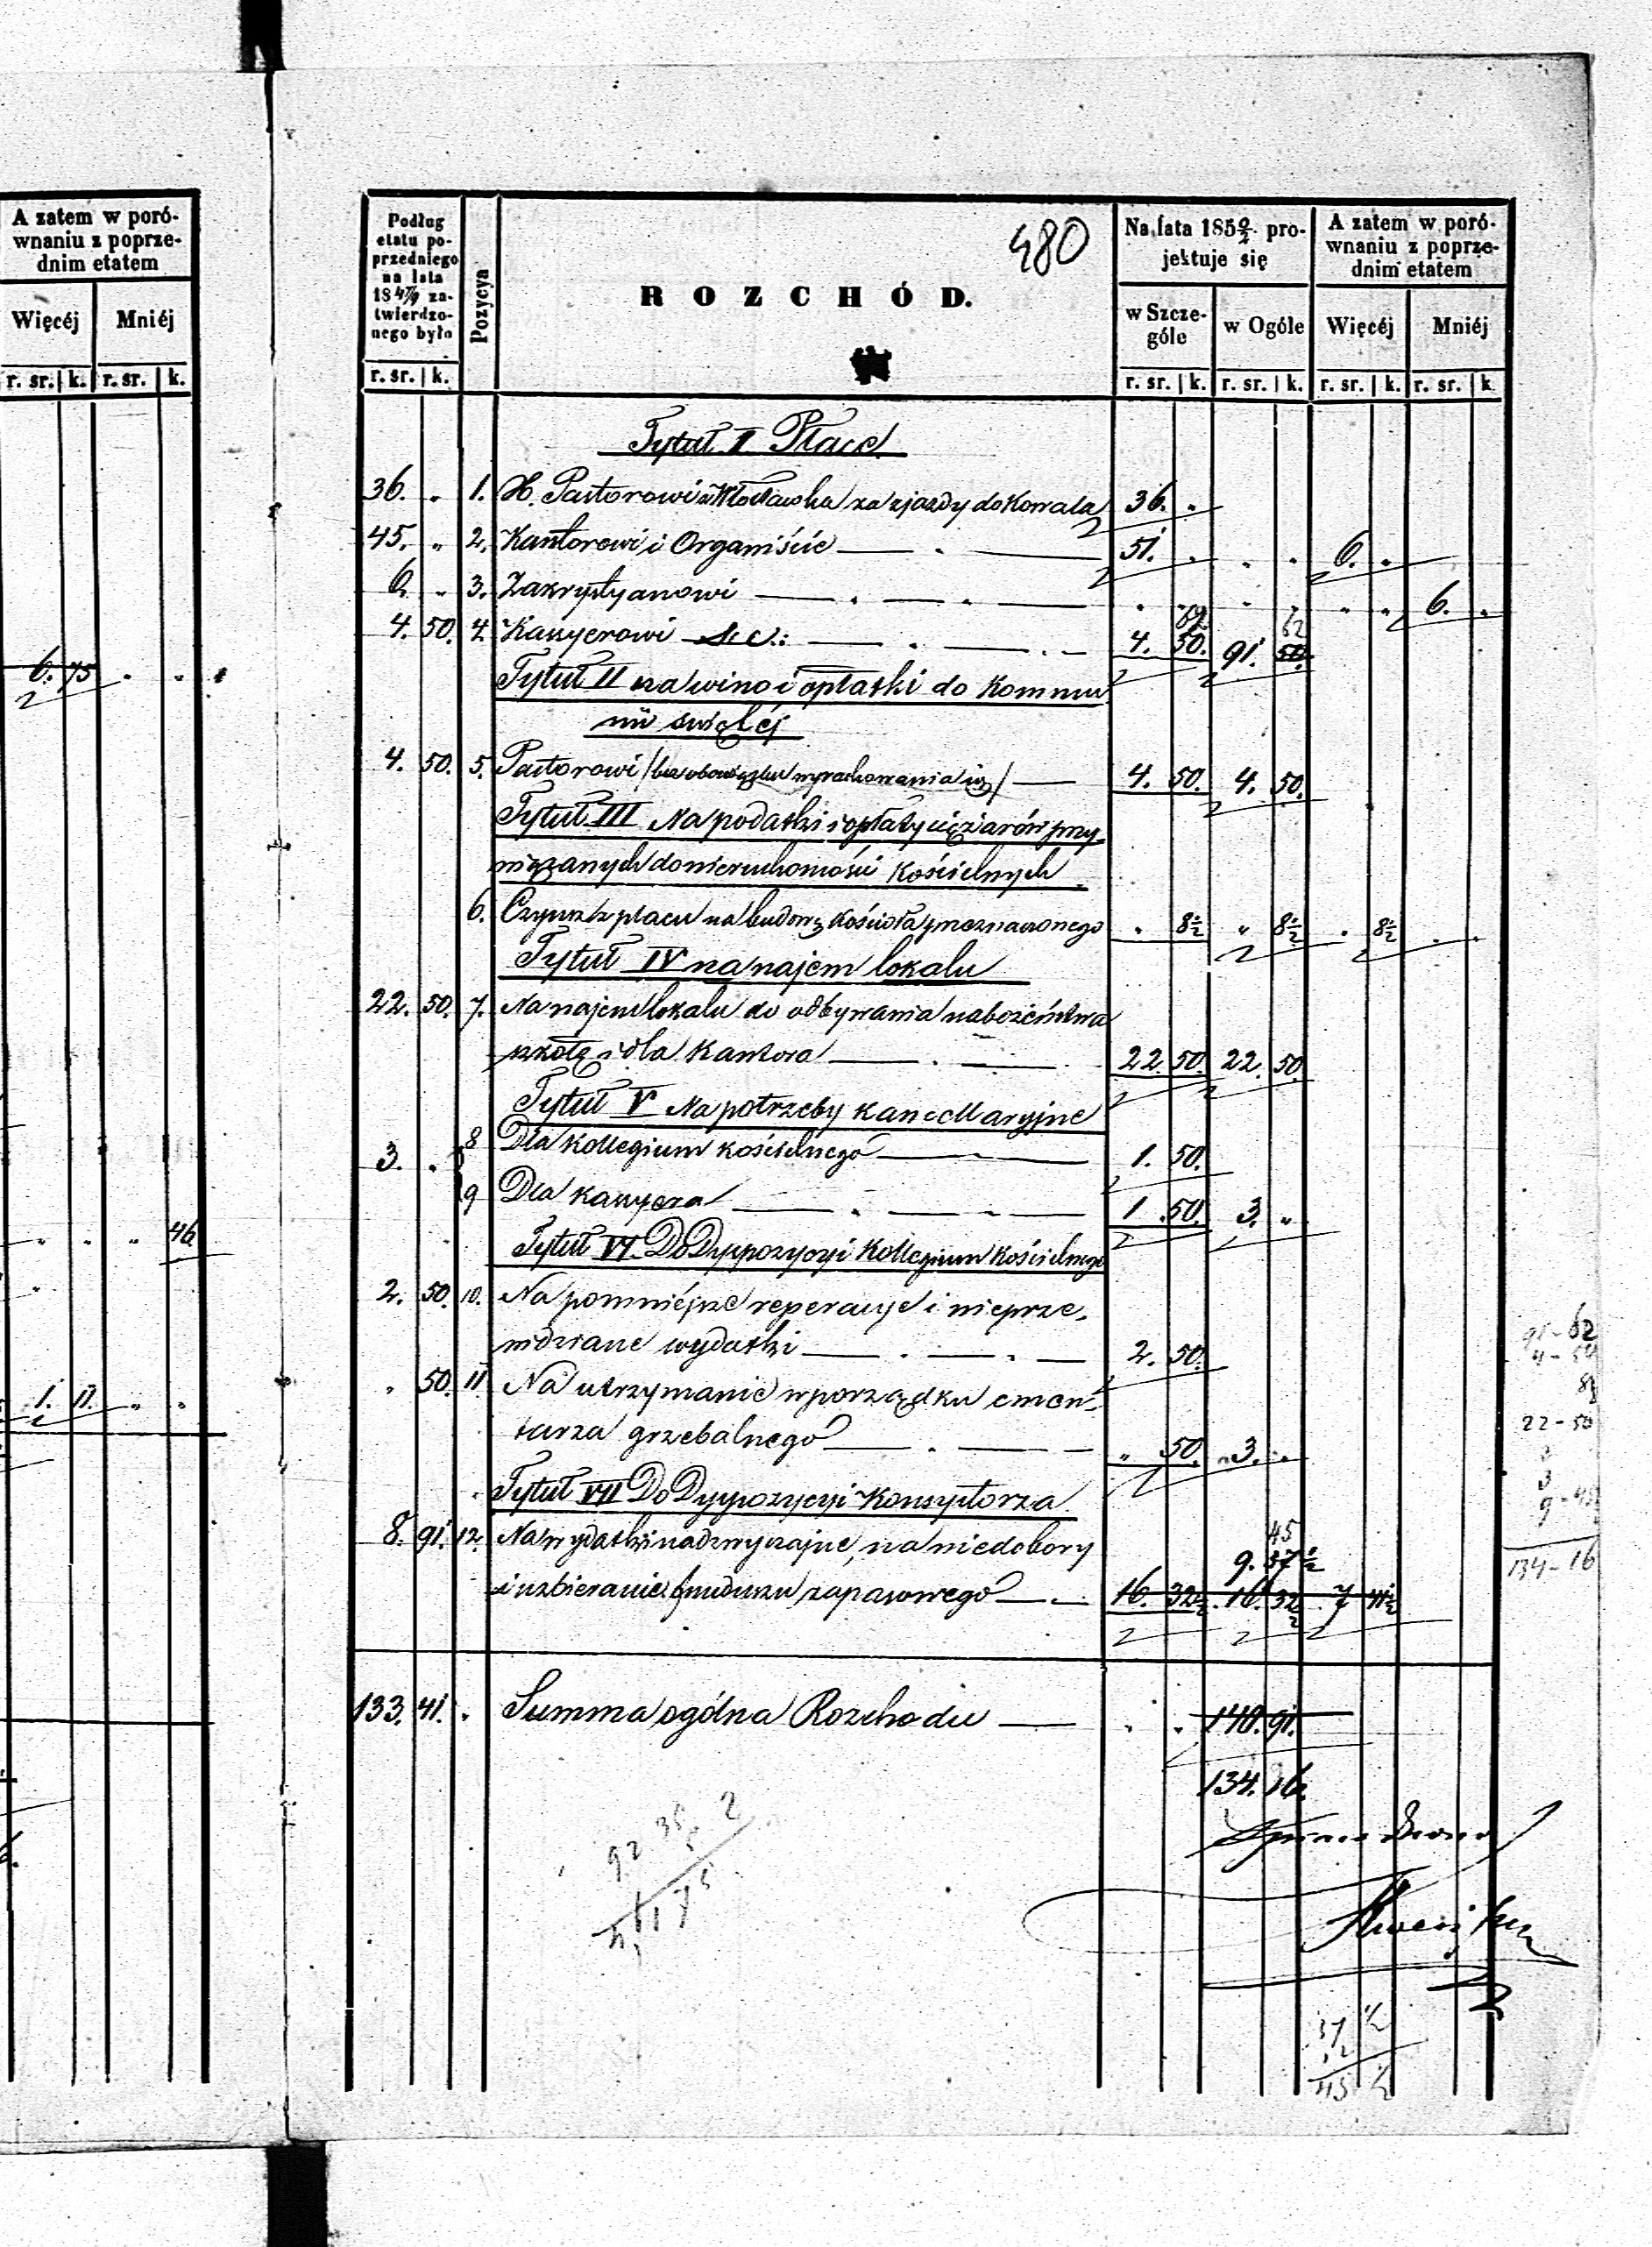 A zatem w poró-
wnaniu z poprze-
dnim etatem
Więcéj Mniéj
r. sr. k. r. sr. k.
6. 75 " "
" " " 46
1. 11. " "
480
Podług
etatu po-
przedniego
na lata
1847/9 za-
twierdzo-
nego było
r. sr. k.
Pozycya
ROZCHÓD.
Na lata 1850/2 pro-
jektuje się
w Szcze-
góle
w Ogóle
r. sr. k. r. sr. k.
A zatem w poró-
wnaniu z poprze-
dnim etatem
Więcéj Mniéj
r. sr. k. r. sr. k.
Tytuł I Płace
36. " 1. X. Pastorowi z Włocławka za zjazdy do Kowala 36. "
45. " 2. Kantorowi i Organiście 51. " " " 6. "
6. " 3. Zakrystyanowi " " " " " " 6. "
62
4. 50. 4. Kassyerowi 4. 50. 91. 50.
Tytuł II za wino i opłatki do Kommu
nii świętéj
4. 50. 5. Pastorowi /bez obowiązku wyrachowania się/ 4. 50. 4. 50.
Tytuł III Na podatki i opłaty ciężarów przy
wiązanych do nieruchomości Kościelnych
6. Czynsz z placu na budowę Kościoła przeznaczonego " 8½ " 8½ " 8½ " "
Tytuł IV na najem lokalu
22. 50. 7. Na najem lokalu do odbywania nabożeństwa
szkołę i dla Kantora 22 50. 22. 50.
Tytuł V Na potrzeby kancellaryjne
3. " 8 Dla Kollegium Kościelnego 1. 50.
9 Dla kassyera 1 50. 3. "
Tytuł VI Do Dyspozycyi Kollegium Kościelnego
2. 50. 10. Na pomniejsze reperacye i nieprze-
widziane wydatki 2. 50.
" 50. 11 Na utrzymanie w porządku cmen-
tarza grzebalnego " 50. 3. "
Tytuł VII Do Dyspozycyi Konsystorza
45
8. 91. 12. Na wydatki nadzwyczajne, na niedobory 9. 37½
i uzbieranie funduszu zapasowego 16. 32½ 16. 32½ 7 41½
133. 41. " Summa ogólna Rozchodu " " 140. 91.
134. 16.
91-62
4-50
8½
22-50
3
3
9-45
134-16